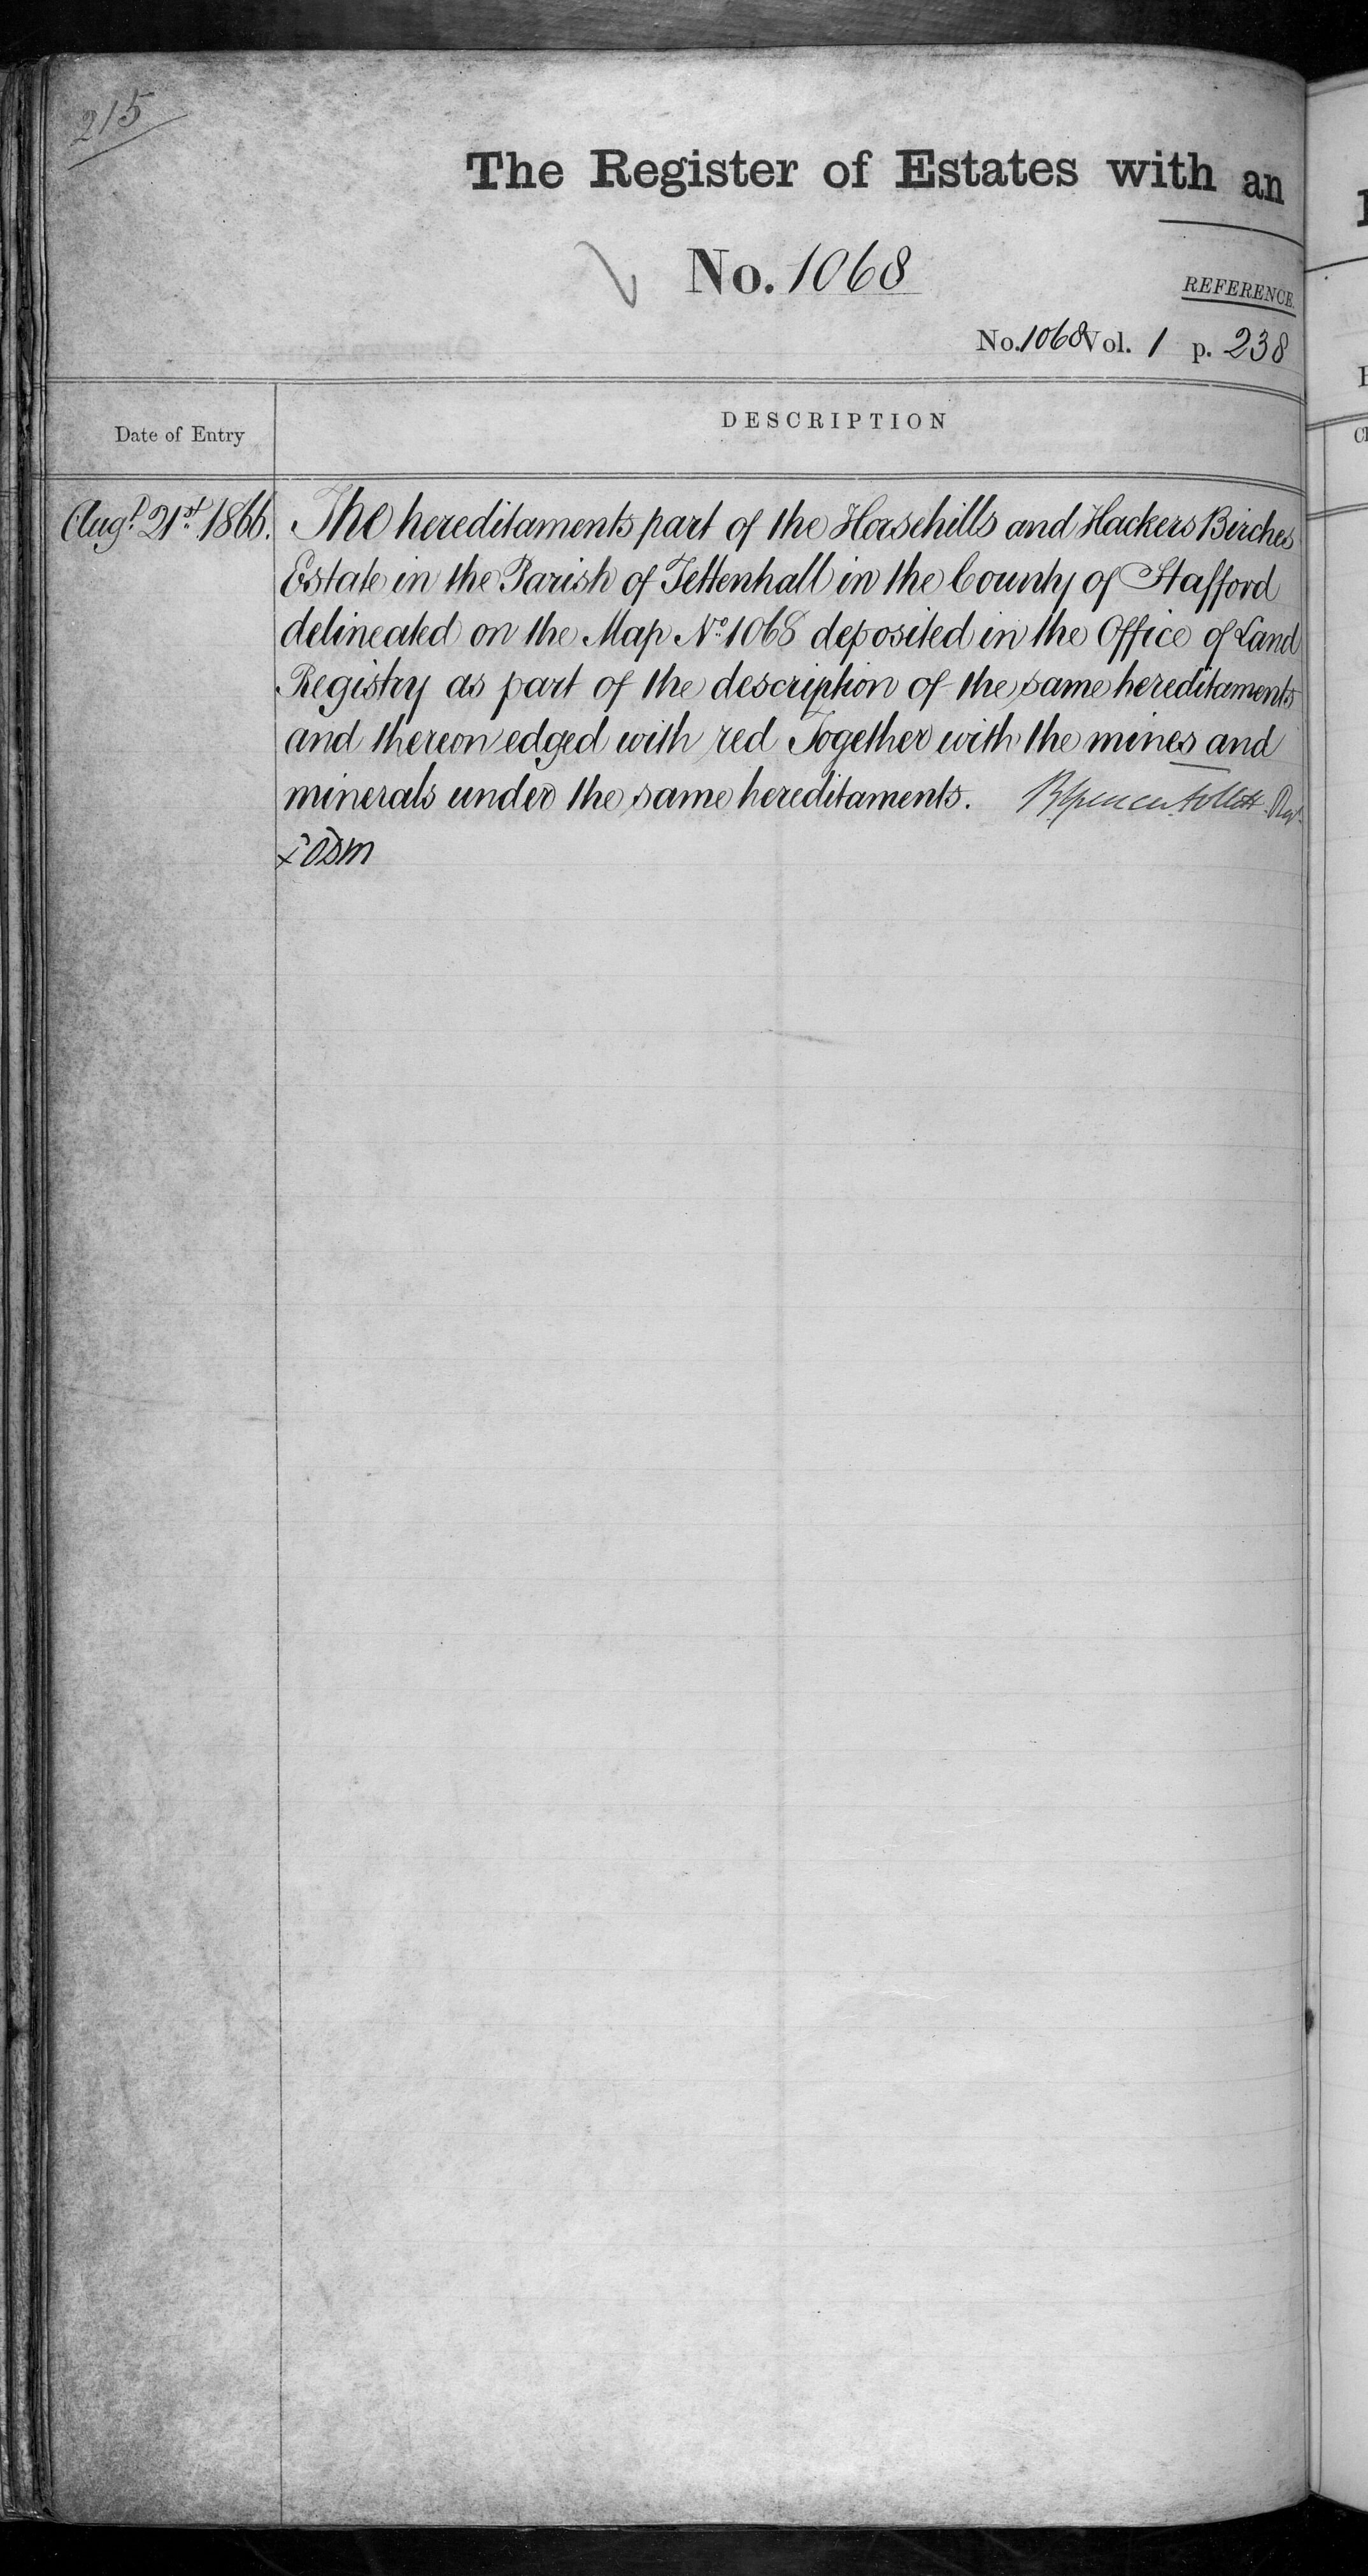 215
The Register of Estates with an
No. 1068
REFERENCE.
No. 1068 Vol. 1 p. 238
Date of Entry
DESCRIPTION
Augt. 21st. 1866. The hereditaments part of the Horsehills and Hackers Birches
Estate in the Parish of Tettenhall in the County of Stafford
delineated on the Map No. 1068 deposited in the Office of Land
Registry as part of the description of the same hereditaments
and thereon edged with red Together with the mines and
minerals under the same hereditaments. Spencer Follett Regr.